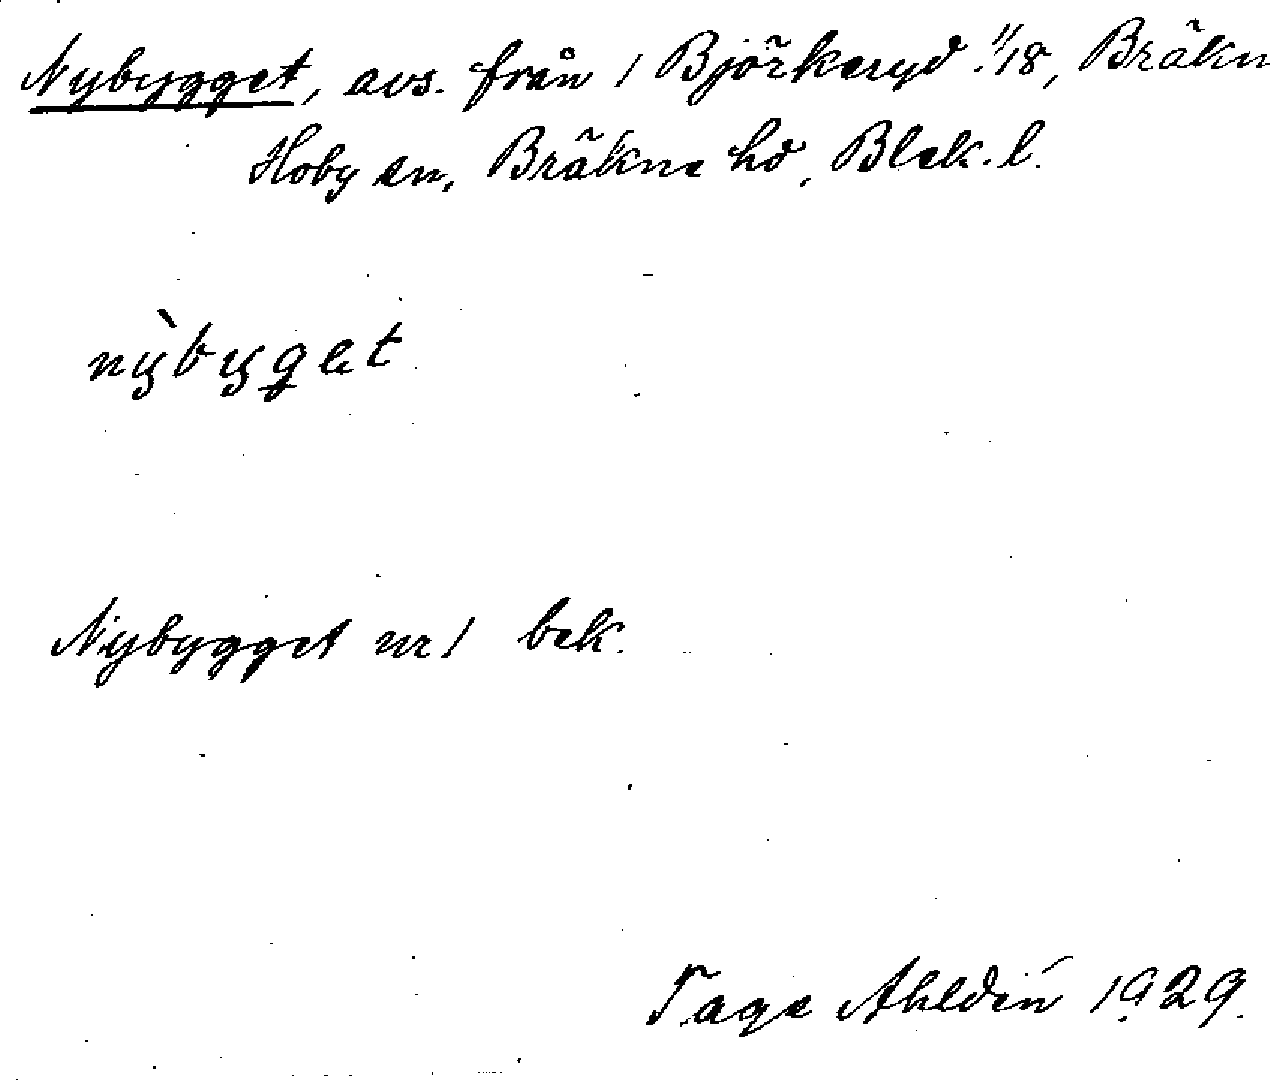 Nybygget, avs. från 1 Björkeryd 1/18, Bräkn
Hoby sn, Bräkne hd, Blek. l.
nỳbyget
Nybygget nr 1 bek.
Tage Ahldén 1929.